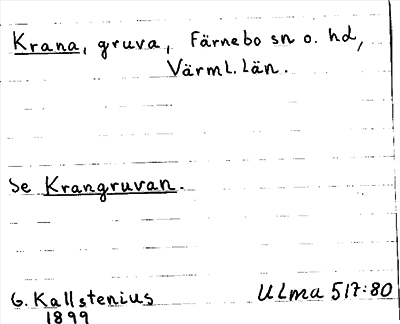 Krana, gruva, Färnebo sn o. hd,
Värml. län.
Se Krangruvan.
G. Kallstenius ULma 517:80
1899